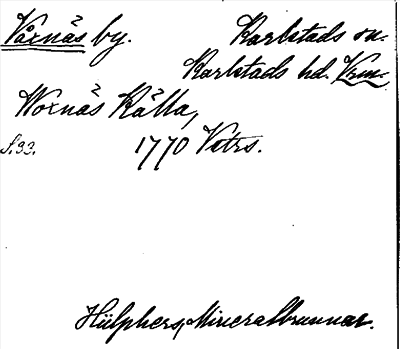 Våxnäs by. Karlstads sn.
Karlstads hd. Vrm.
Woxnäs Källa,
S.93. 1770 Vttrs.
Hülphers, Mineralbrunnar.